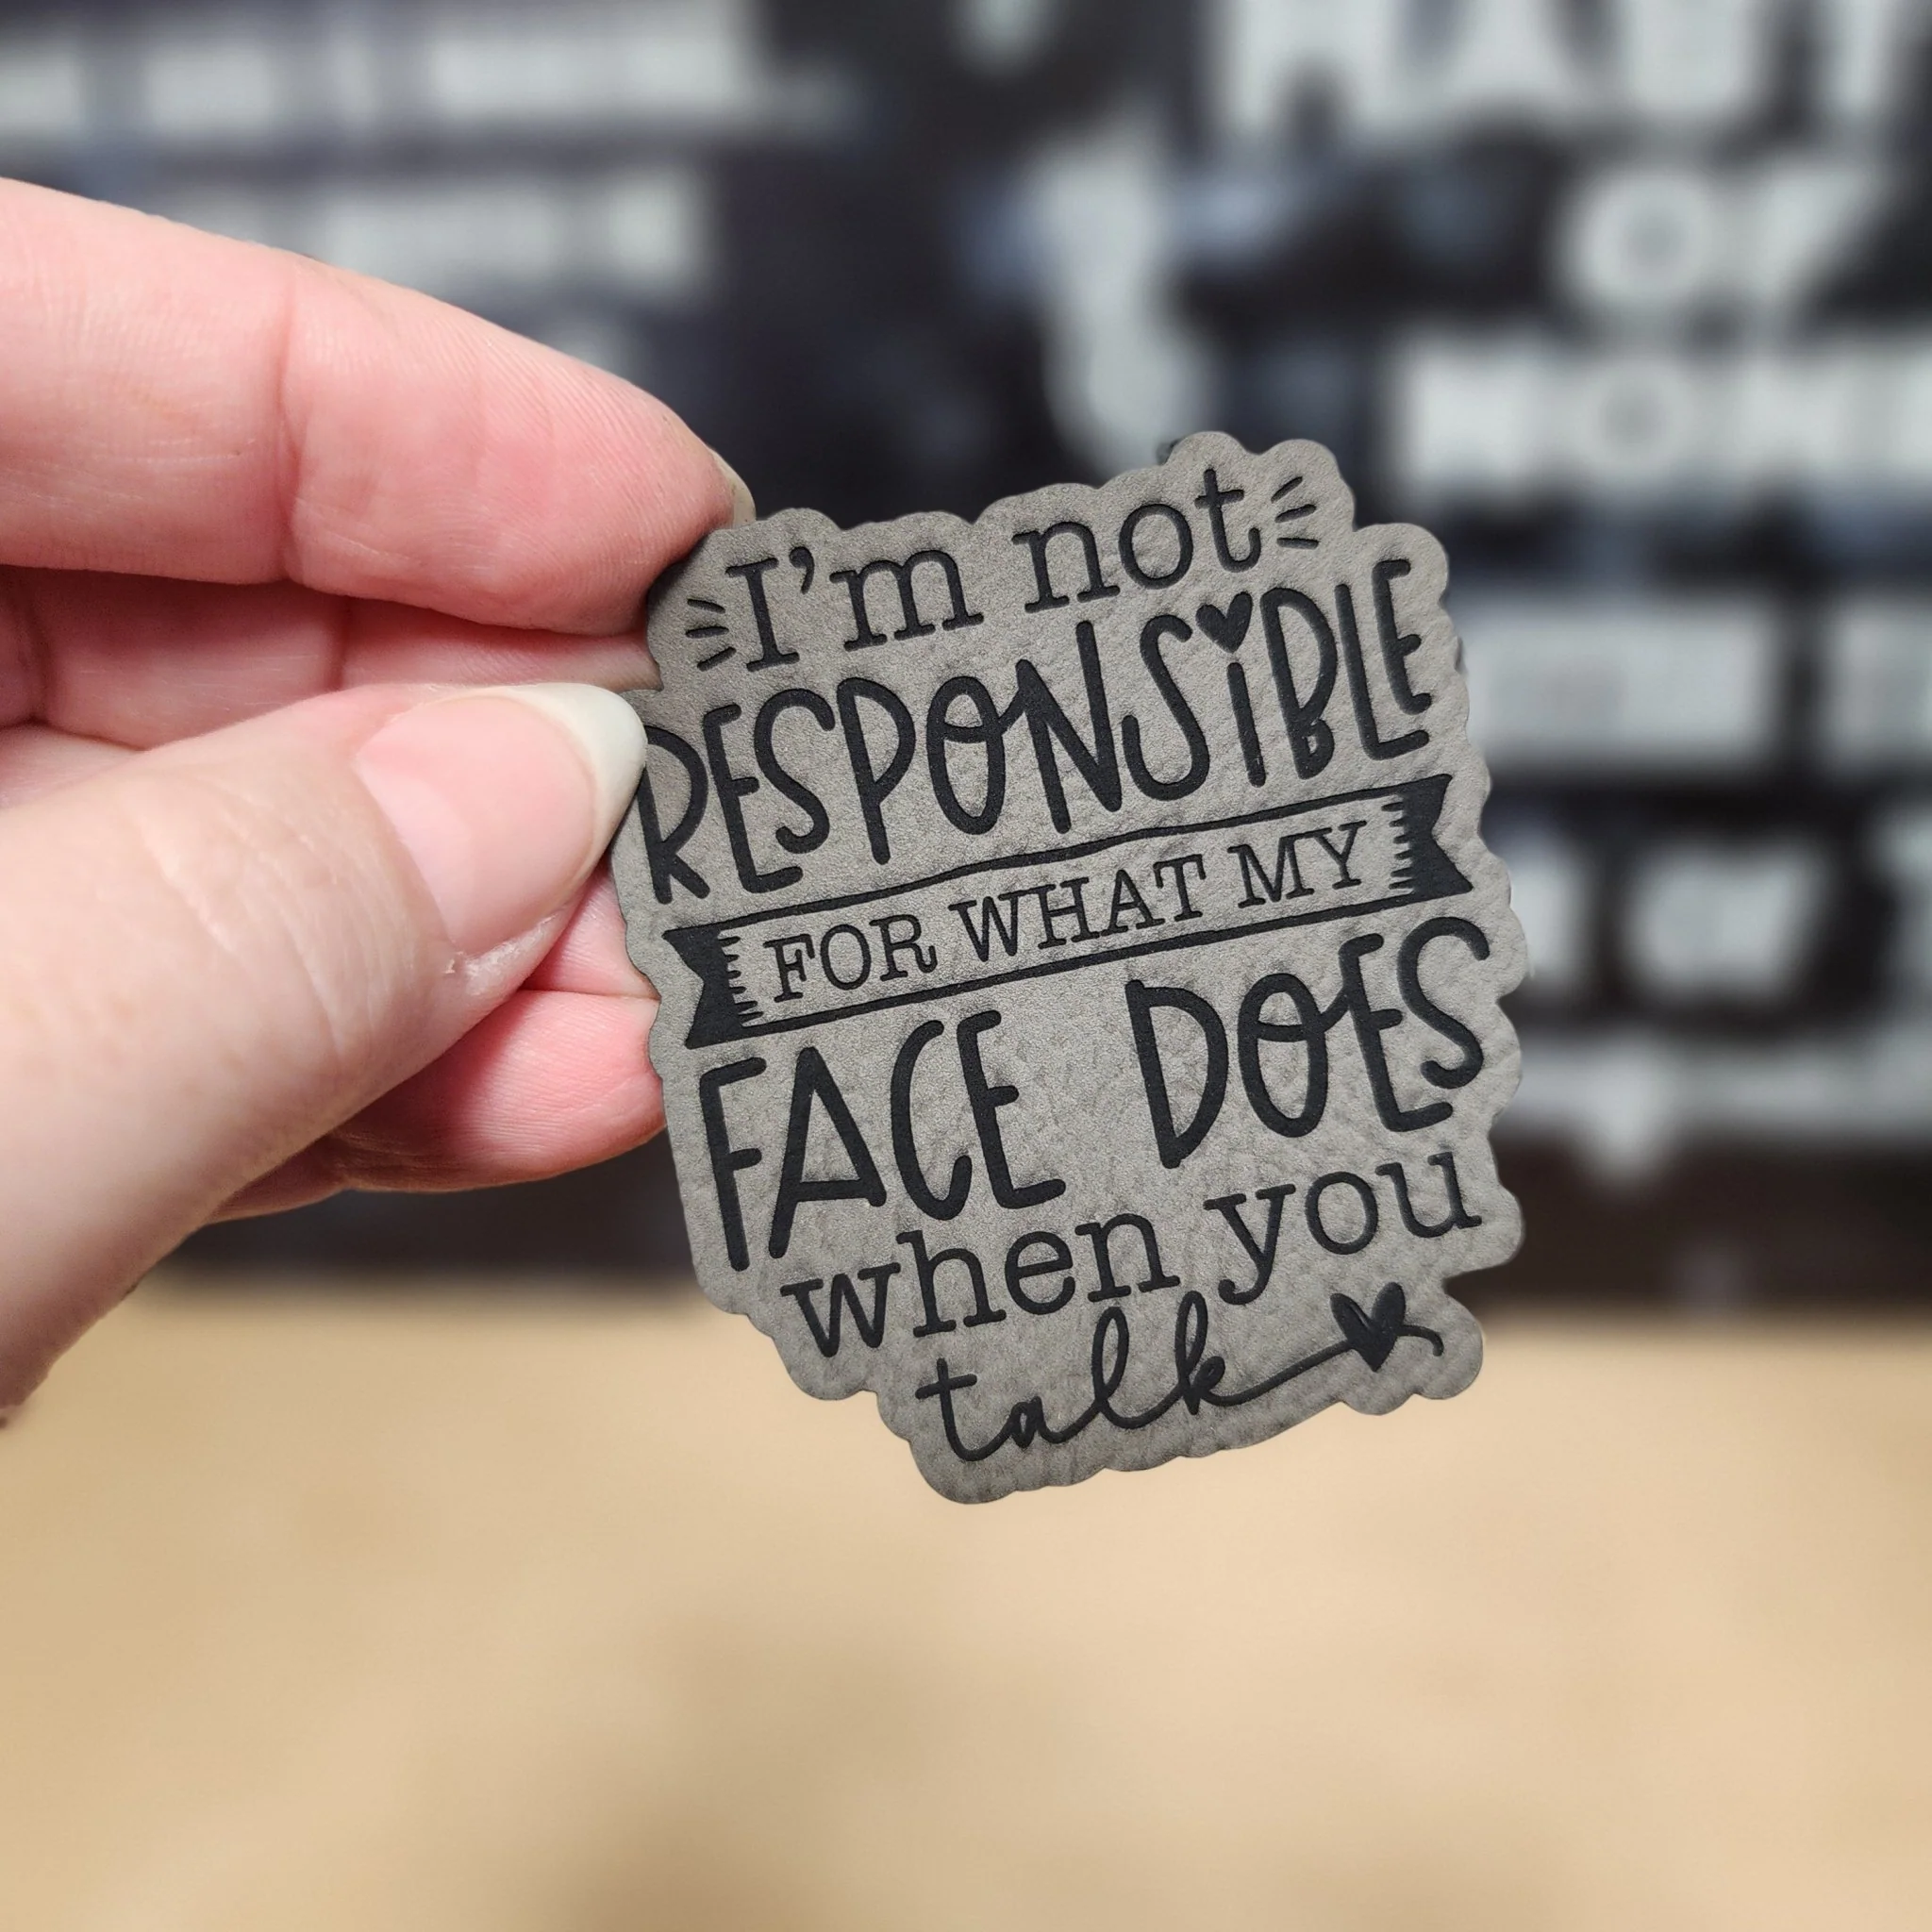 I'm not
RESPONSiBLE
FOR WHAT MY
FACE DOES
when you
talk